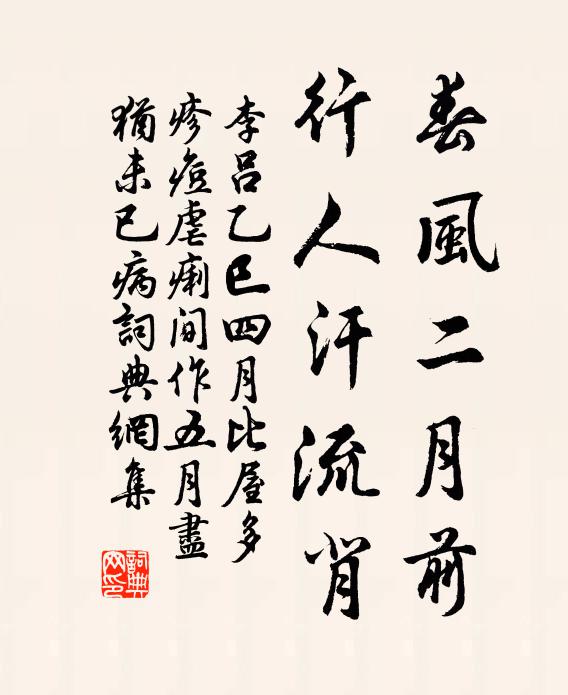 春風二月前
行人汗流背
李呂乙巳四月比屋多
疹痘虐痢間作五月盡
猶未已病詞典網集
詞典网印